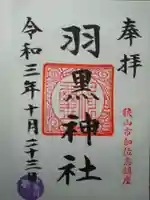 奉拝
狭山市加佐志鎮座
羽黒神社
令和三年十月二十三日